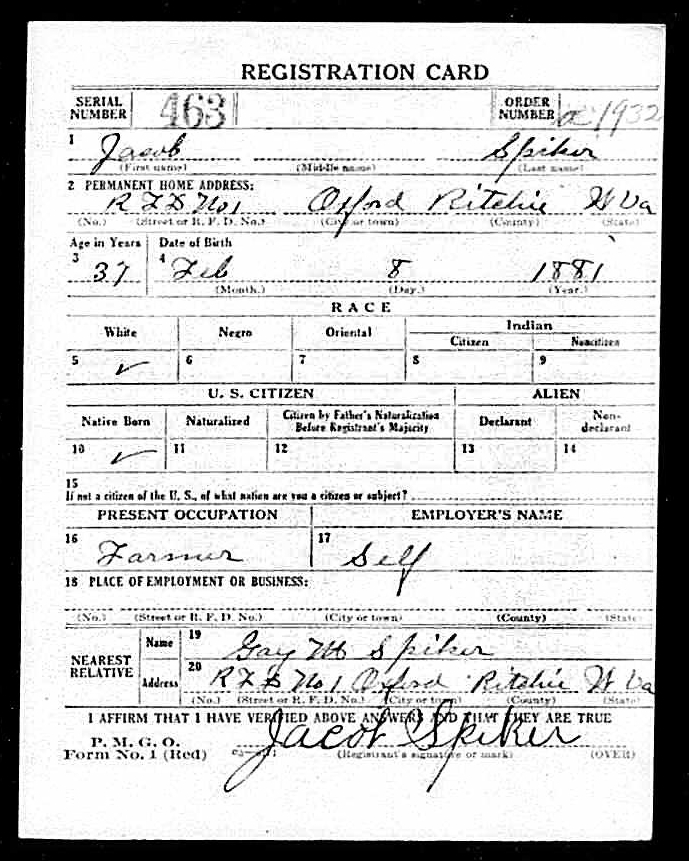 REGISTRATION CARD
SERIAL NUMBER 463 ORDER NUMBER a 1932
1 Jacob Spiker
(First name) (Middle name) (Last name)
2 PERMANENT HOME ADDRESS:
R F D No 1 Oxford Ritchie W Va
(No.) (Street or R. F. D. No.) (City or town) (County) (State)
Age in Years Date of Birth
3 37 4 Feb 8 1881
(Month.) (Day.) (Year.)
RACE
White Negro Oriental Indian
Citizen Noncitizen
5 ✓ 6 7 8 9
U. S. CITIZEN ALIEN
Native Born Naturalized Citizen by Father's Naturalization Before Registrant's Majority Declarant Non-declarant
10 ✓ 11 12 13 14
15
If not a citizen of the U. S., of what nation are you a citizen or subject?
PRESENT OCCUPATION EMPLOYER'S NAME
16 Farmer 17 Self
18 PLACE OF EMPLOYMENT OR BUSINESS:
(No.) (Street or R. F. D. No.) (City or town) (County) (State)
NEAREST RELATIVE Name 19 Gay M Spiker
Address 20 R F D No 1 Oxford Ritchie W Va
(No.) (Street or R. F. D. No.) (City or town) (County) (State)
I AFFIRM THAT I HAVE VERIFIED ABOVE ANSWERS AND THAT THEY ARE TRUE
P. M. G. O.
Form No. 1 (Red) Jacob Spiker
(Registrant's signature or mark) (OVER)